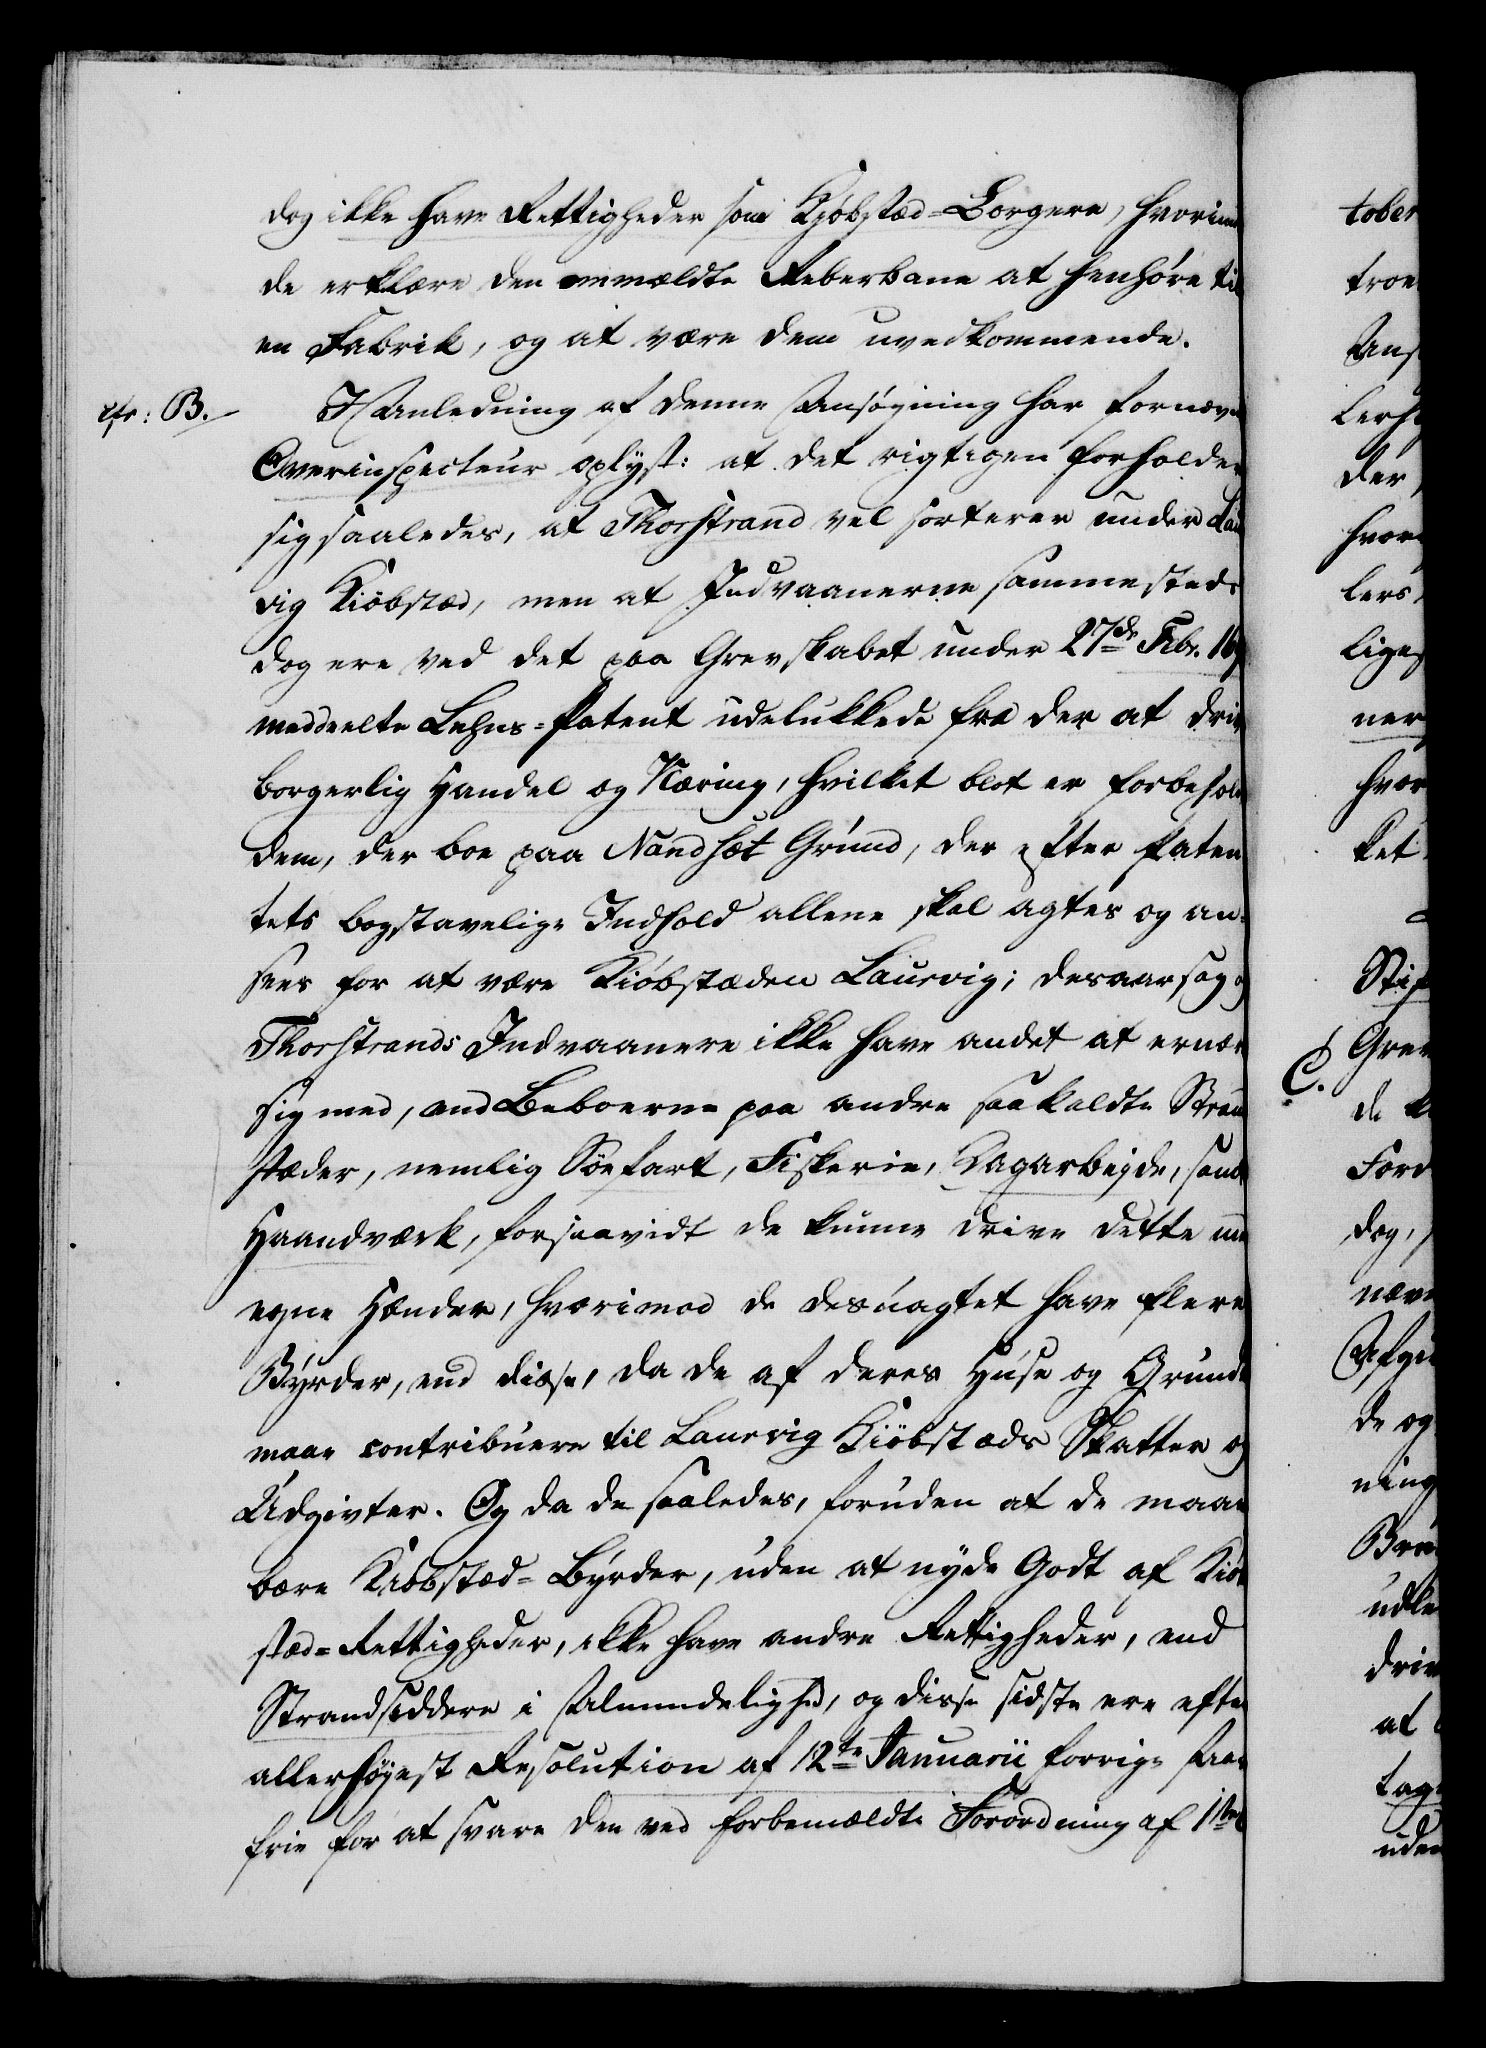 dog ikke have Rettigheder som Kjøbstæd=Borgere, hvorimod
de erklære den ommældte Reberbane at henhøre til
en Fabrik, og at være dem uvedkommende.
cfr: B.
I Anledning af denne Ansøgning har fornævn
Overinspecteur oplyst: at det rigtigen forholder
sig saaledes, at Thorstrand vel sorterer under Laur
vig Kiøbstæd, men at Indvaanerne sammesteds
dog ere ved det paa Grevskabet under 27de Febr. 16
meddeelte Lehns=Patent udelukkede fra der at driv
borgerlig Handel og Næring, hvilket blot er forbehold
dem, der boe paa Nandsæt Grund, der efter Paten
tets bogstavelige Indhold allene skal agtes og an=
sees for at være Kiøbstæden Laurvig; desaarsag
Thorstrands Indvaanere ikke have andet at ernær
sig med, end Beboerne paa andre saakaldte Strand
stæder, nemlig Søefart, Fiskerie, Dagarbejde, samt
Haandværk, forsaavidt de kunne drive dette med
egne Hænder, hvorimod de desuagtet have flere
Byrder, end disse, da de af deres Huse og Grunde
maae contribuere til Laurvig Kiøbstæds Skatter og
Udgivter. Og da de saaledes, foruden at de maae
bære Kiøbstæd=Byrder, uden at nyde Godt af Kiøb
stæd=Rettigheder, ikke have andre Rettigheder, end
Strandsiddere i Almindelighed, og disse sidste ere efter
allerhøyest Resolution af 12te Januarii forrige Aar
frie for at svare den ved forbemældte Forordning af 1ste
tober
troe
Ans
lers
der,
hvor
lers
liges
ner
hvor
ket
Stif
C.
Grev
de k
Ford
dog,
næv
Afgi
de og
ning
Bru
udle
driv
at
tag
uden